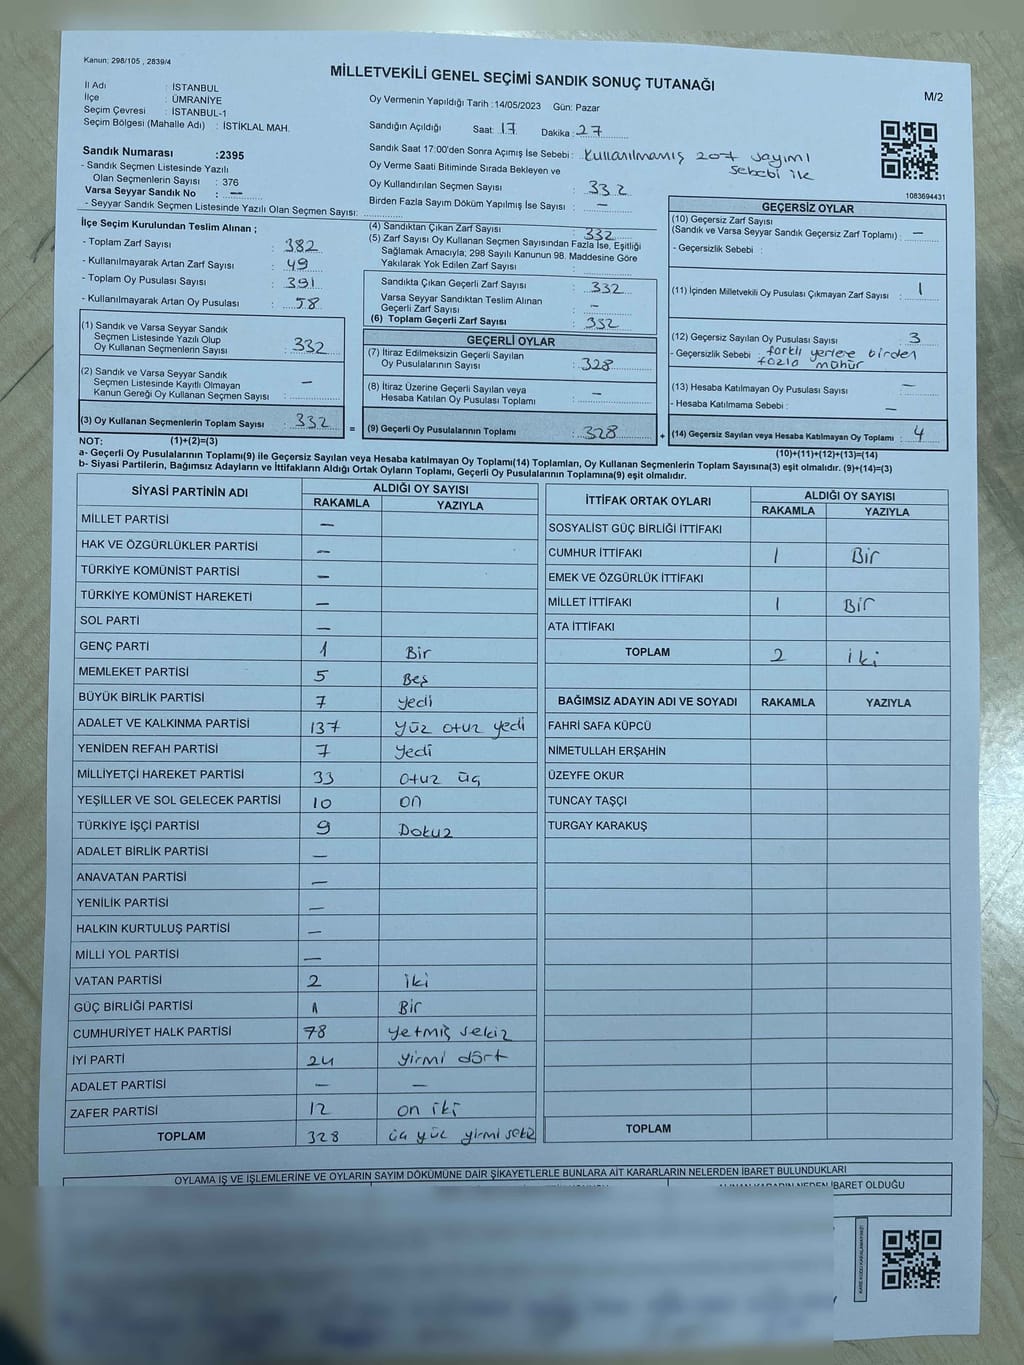 Kanun: 298/105 , 2839/4
MİLLETVEKİLİ GENEL SEÇİMİ SANDIK SONUÇ TUTANAĞI
M/2
İl Adı : İSTANBUL
İlçe : ÜMRANİYE
Seçim Çevresi : İSTANBUL-1
Seçim Bölgesi (Mahalle Adı) : İSTİKLAL MAH.
Oy Vermenin Yapıldığı Tarih :14/05/2023 Gün: Pazar
Sandığın Açıldığı Saat: 17 Dakika : 27
Sandık Saat 17:00'den Sonra Açımış İse Sebebi : Kullanılmamış zarf sayımı
sebebi ile
Sandık Numarası :2395
- Sandık Seçmen Listesinde Yazılı
Olan Seçmenlerin Sayısı : 376
Varsa Seyyar Sandık No : —
- Seyyar Sandık Seçmen Listesinde Yazılı Olan Seçmen Sayısı:
Oy Verme Saati Bitiminde Sırada Bekleyen ve
Oy Kullandırılan Seçmen Sayısı : 332
Birden Fazla Sayım Döküm Yapılmış İse Sayısı : —
1083694431
İlçe Seçim Kurulundan Teslim Alınan ;
- Toplam Zarf Sayısı : 382
- Kullanılmayarak Artan Zarf Sayısı : 49
- Toplam Oy Pusulası Sayısı : 391
- Kullanılmayarak Artan Oy Pusulası : 58
(1) Sandık ve Varsa Seyyar Sandık
Seçmen Listesinde Yazılı Olup
Oy Kullanan Seçmenlerin Sayısı : 332
(2) Sandık ve Varsa Seyyar Sandık
Seçmen Listesinde Kayıtlı Olmayan
Kanun Gereği Oy Kullanan Seçmen Sayısı : —
(3) Oy Kullanan Seçmenlerin Toplam Sayısı : 332
(4) Sandıktan Çıkan Zarf Sayısı : 332
(5) Zarf Sayısı Oy Kullanan Seçmen Sayısından Fazla İse, Eşitliği
Sağlamak Amacıyla; 298 Sayılı Kanunun 98. Maddesine Göre
Yakılarak Yok Edilen Zarf Sayısı :
Sandıkta Çıkan Geçerli Zarf Sayısı : 332
Varsa Seyyar Sandıktan Teslim Alınan
Geçerli Zarf Sayısı : —
(6) Toplam Geçerli Zarf Sayısı : 332
GEÇERLİ OYLAR
(7) İtiraz Edilmeksizin Geçerli Sayılan
Oy Pusulalarının Sayısı : 328
(8) İtiraz Üzerine Geçerli Sayılan veya
Hesaba Katılan Oy Pusulası Toplamı : —
= (9) Geçerli Oy Pusulalarının Toplamı : 328
GEÇERSİZ OYLAR
(10) Geçersiz Zarf Sayısı
(Sandık ve Varsa Seyyar Sandık Geçersiz Zarf Toplamı) : —
- Geçersizlik Sebebi :
(11) İçinden Milletvekili Oy Pusulası Çıkmayan Zarf Sayısı : 1
(12) Geçersiz Sayılan Oy Pusulası Sayısı : 3
- Geçersizlik Sebebi : farklı yerlere birden
fazla mühür
(13) Hesaba Katılmayan Oy Pusulası Sayısı : —
- Hesaba Katılmama Sebebi : —
+ (14) Geçersiz Sayılan veya Hesaba Katılmayan Oy Toplamı : 4
NOT: (1)+(2)=(3)
(10)+(11)+(12)+(13)=(14)
a- Geçerli Oy Pusulalarının Toplamı(9) ile Geçersiz Sayılan veya Hesaba katılmayan Oy Toplamı(14) Toplamları, Oy Kullanan Seçmenlerin Toplam Sayısına(3) eşit olmalıdır. (9)+(14)=(3)
b- Siyasi Partilerin, Bağımsız Adayların ve İttifakların Aldığı Ortak Oyların Toplamı, Geçerli Oy Pusulalarının Toplamına(9) eşit olmalıdır.
SİYASİ PARTİNİN ADI ALDIĞI OY SAYISI
RAKAMLA YAZIYLA
MİLLET PARTİSİ —
HAK VE ÖZGÜRLÜKLER PARTİSİ —
TÜRKİYE KOMÜNİST PARTİSİ —
TÜRKİYE KOMÜNİST HAREKETİ —
SOL PARTİ —
GENÇ PARTİ 1 Bir
MEMLEKET PARTİSİ 5 Beş
BÜYÜK BİRLİK PARTİSİ 7 yedi
ADALET VE KALKINMA PARTİSİ 137 yüz otuz yedi
YENİDEN REFAH PARTİSİ 7 Yedi
MİLLİYETÇİ HAREKET PARTİSİ 33 otuz üç
YEŞİLLER VE SOL GELECEK PARTİSİ 10 on
TÜRKİYE İŞÇİ PARTİSİ 9 Dokuz
ADALET BİRLİK PARTİSİ —
ANAVATAN PARTİSİ —
YENİLİK PARTİSİ —
HALKIN KURTULUŞ PARTİSİ —
MİLLİ YOL PARTİSİ —
VATAN PARTİSİ 2 iki
GÜÇ BİRLİĞİ PARTİSİ 1 Bir
CUMHURİYET HALK PARTİSİ 78 yetmiş sekiz
İYİ PARTİ 24 yirmi dört
ADALET PARTİSİ — —
ZAFER PARTİSİ 12 on iki
TOPLAM 328 üç yüz yirmi sekiz
İTTİFAK ORTAK OYLARI ALDIĞI OY SAYISI
RAKAMLA YAZIYLA
SOSYALİST GÜÇ BİRLİĞİ İTTİFAKI
CUMHUR İTTİFAKI 1 Bir
EMEK VE ÖZGÜRLÜK İTTİFAKI
MİLLET İTTİFAKI 1 Bir
ATA İTTİFAKI
TOPLAM 2 iki
BAĞIMSIZ ADAYIN ADI VE SOYADI RAKAMLA YAZIYLA
FAHRİ SAFA KÜPCÜ
NİMETULLAH ERŞAHİN
ÜZEYFE OKUR
TUNCAY TAŞÇI
TURGAY KARAKUŞ
TOPLAM
OYLAMA İŞ VE İŞLEMLERİNE VE OYLARIN SAYIM DÖKÜMÜNE DAİR ŞİKAYETLERLE BUNLARA AİT KARARLARIN NELERDEN İBARET BULUNDUKLARI
ALINAN KARARIN NEDEN İBARET OLDUĞU